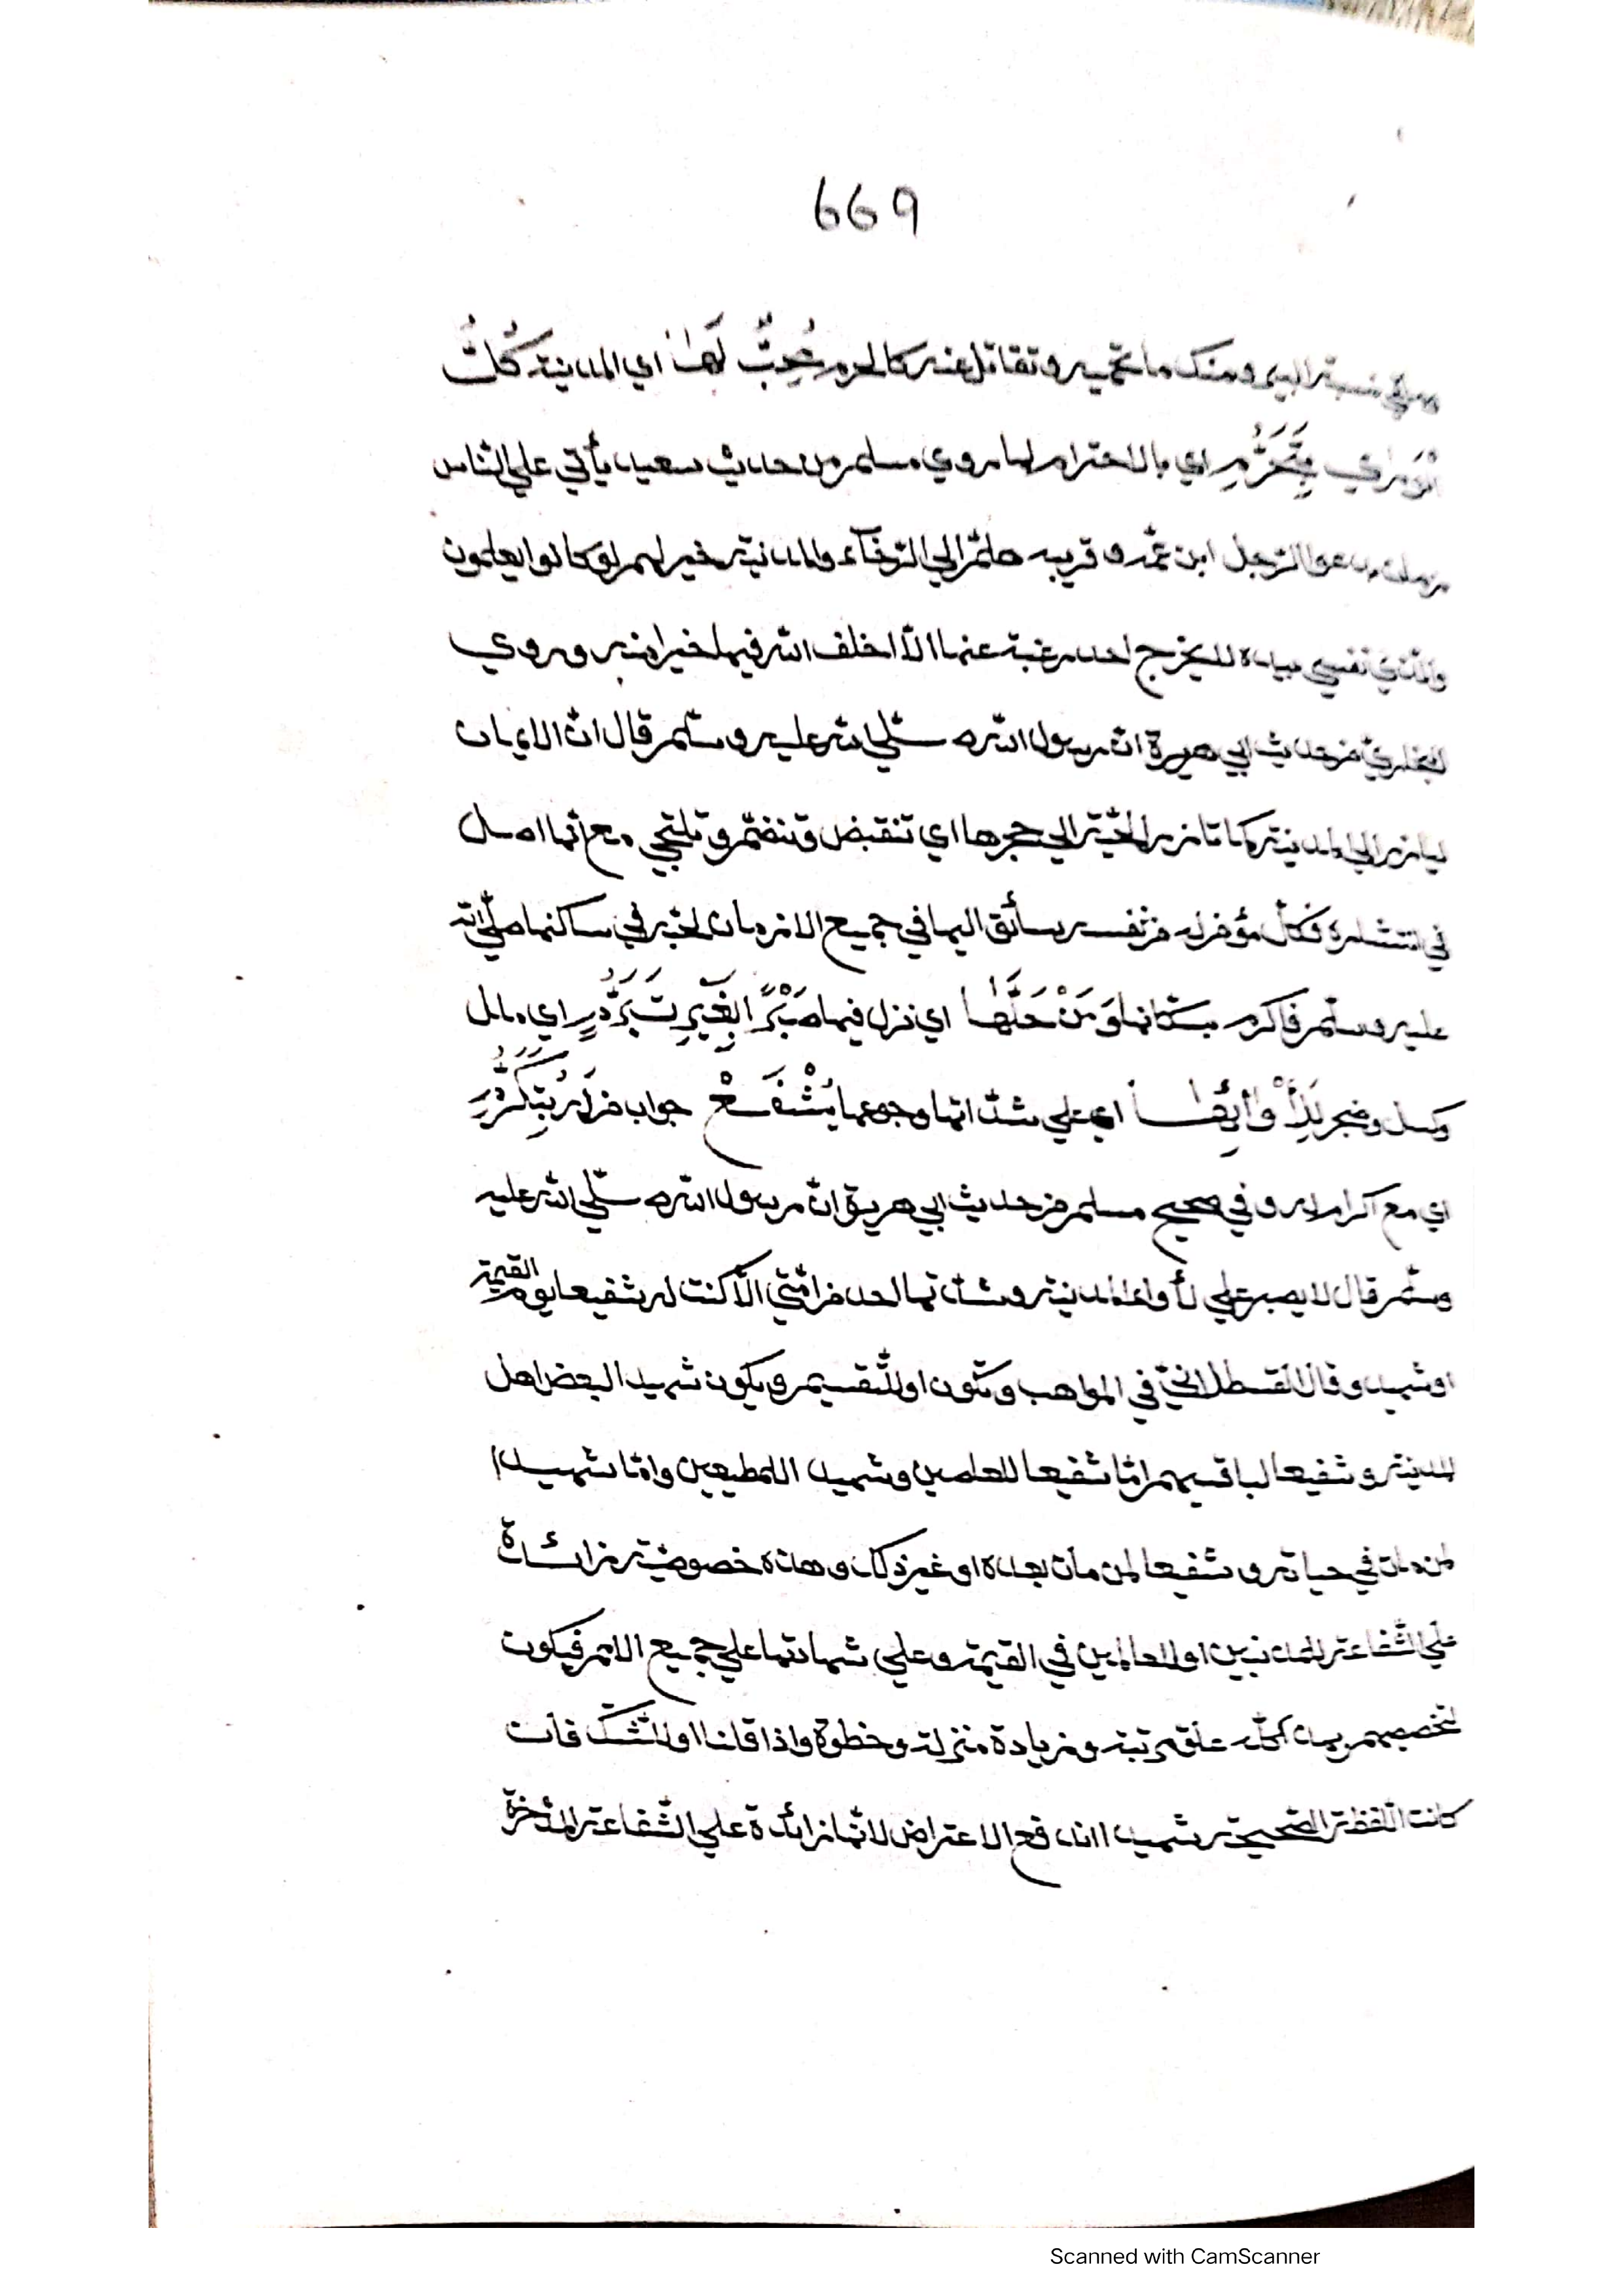 669
نسبة اليه ومنك ما تحميه وتقاتل عنه كالحرم يُحِبُّ لَهَا اي المدينة كُلُّ
الْوَرٰي بِتَحَرُّمِ اي بالاحترام لما روي مسلم من حديث سعيد يأتي علي الناس
زمان يدعوا الرّجل ابن عمّه وقريبه هلمّ الي الرّخآء والمدنية خير لهم لو كانوا يعلمون
والّذي نفسي بيده لا يخرج احد رغبة عنها الاّ اخلف الله فيها خيرا منه وروي
البخاريّ من حديث ابي هريرة انّ رسول الله صلّي الله عليه وسلّم قال انّ الايمان
ليازر الي المدينة كما تازر الحيّة الي حجرها اي تنقبض وتنضمّ وتلتجي مع انّها اصل
في انتشاره فكلّ مؤمن له من نفسه سائق اليها في جميع الازمان لحبّه في ساكنها صلّي الله
عليه وسلّم فاكرم بسكّانها وَمَنْ حَلَّهَا اي نزل فيها صَبْرًا بِغَيْرِ تَبَرُّمٍ اي ملل
وكسل وضجر لِلَأْوَائِهَا اي علي شدّاتها وجوعها يُشْفَعْ جواب من لَهُ بِتَكَرُّمِ
اي مع اكرام له وفي صحيح مسلم من حديث ابي هريرة انّ رسول الله صلّي الله عليه
وسلّم قال لا يصبر علي لأواء المدينة وشدّتها احد من امّتي الاّ كنت له شفيعا يوم القيمة
او شهيد وقال القسطلانيّ في المواهب وتكون او للتّقسيم ويكون شهيدا لبعض اهل
المدينة وشفيعا لباقيهم امّا شفيعا للعاصين وشهيدا للمطيعين وامّا شهيدا
لمن مات في حياته وشفيعا لمن مات بعده او غير ذلك وهذه خصوصيّة زائدة
علي الشّفاعة للمذنبين او للعالمين في القيمة وعلي شهادتها علي جميع الامم فيكون
لتخصيصهم بهذا كلّه علوّ مرتبة وزيادة منزلة وخطوة واذا قلنا او للشّكّ فان
كانت اللّفظة الصّحيحة شهيدا اندفع الاعتراض لانّها زائدة علي الشّفاعة المدّخرة
Scanned with CamScanner